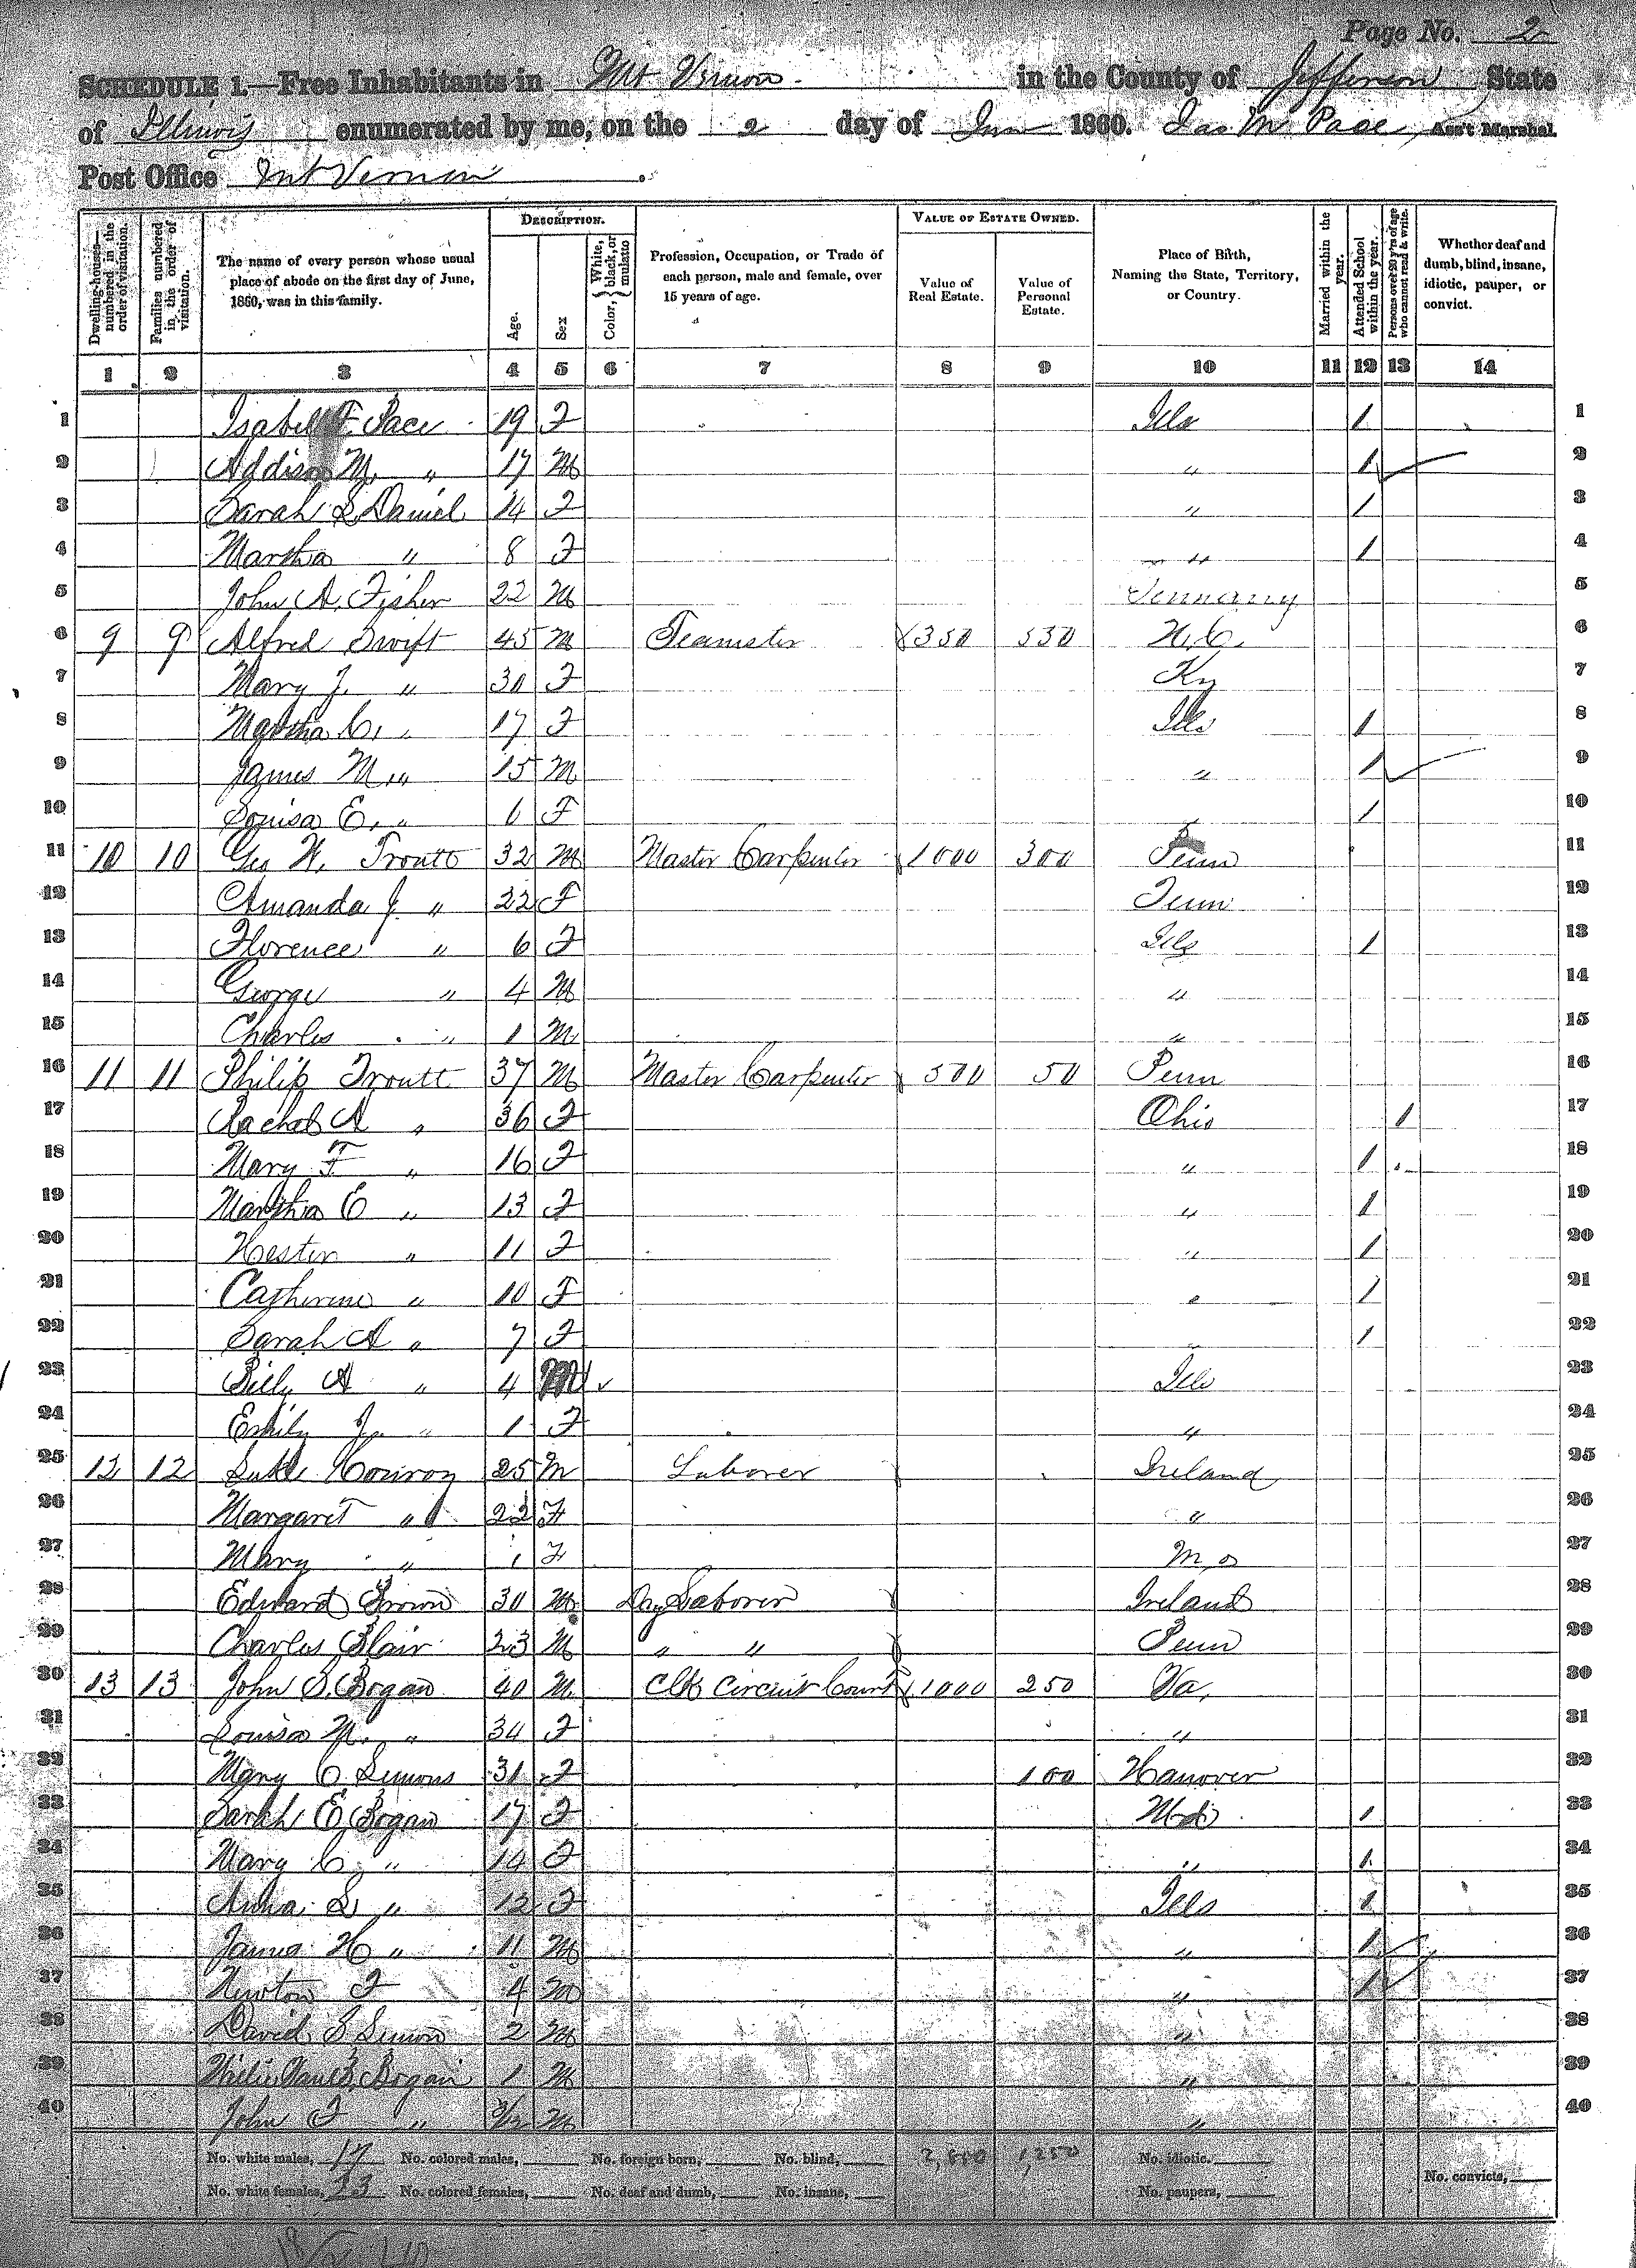 Page No. 2
SCHEDULE 1.—Free Inhabitants in Mt Vernon in the County of Jefferson State
of Illinois enumerated by me, on the 2 day of June 1860. Jas M Pace, Ass't Marshal.
Post Office Mt Vernon
Dwelling-houses—numbered in the order of visitation. Families numbered in the order of visitation. The name of every person whose usual place of abode on the first day of June, 1860, was in this family. Description. Age. Sex Color, White, black, or mulatto Profession, Occupation, or Trade of each person, male and female, over 15 years of age. Value of Estate Owned. Value of Real Estate. Value of Personal Estate. Place of Birth, Naming the State, Territory, or Country. Married within the year. Attended School within the year. Persons over 20 y'rs of age who cannot read & write. Whether deaf and dumb, blind, insane, idiotic, pauper, or convict.
1 2 3 4 5 6 7 8 9 10 11 12 13 14
1 Isabel F. Pace 19 F Ills 1 1
2 Addison M. " 17 M " 1 2
3 Sarah L Daniel 14 F " 1 3
4 Martha " 8 F " 1 4
5 John A. Fisher 22 M 5
6 9 9 Alfred Swift 45 M Teamster 350 550 N.C. 6
7 Mary J. " 30 F Ky 7
8 Martha C. " 17 F Ills 1 8
9 James M. " 15 M " 1 9
10 Louisa E. " 6 F 1 10
11 10 10 Geo W. Troutt 32 M Master Carpenter 1000 300 Penn 11
12 Amanda J. " 22 F Tenn 12
13 Florence " 6 F Ills 1 13
14 George " 4 M " 14
15 Charles " 1 M " 15
16 11 11 Philip Troutt 37 M Master Carpenter 500 50 Penn 16
17 Rachel A " 36 F Ohio 1 17
18 Mary F " 16 F " 1 18
19 Martha E " 13 F " 1 19
20 Hester " 11 F " 1 20
21 Catherine " 10 F " 1 21
22 Sarah A " 7 F " 1 22
23 A " 4 M Ills 23
24 Emily J. " 1 F " 24
25 12 12 Luke Conroy 25 M Laborer Ireland 25
26 Margaret " 22 F " 26
27 Mary " 1 F Mo 27
28 Edward Brown 30 M Day Laborer Ireland 28
29 Charles Blair 23 M " " Penn 29
30 13 13 John S. Bogan 40 M Clk Circuit Court 1000 250 Va. 30
31 Louisa M. " 34 F " 31
32 Mary C. Simons 31 F 100 Hanover 32
33 Sarah E Bogan 17 F 1 33
34 Mary C. " 14 F " 1 34
35 Anna L " 12 F Ills 1 35
36 James H " 11 M " 1 36
37 Newton F 4 M " 1 37
38 David S Simon 2 M " 38
39 Bogan 1 M " 39
40 John F " M " 40
No. white males, 17 No. colored males, No. foreign born, No. blind, 1,250 No. idiotic. No. convicts,
No. white females, 23 No. colored females, No. deaf and dumb, No. insane, No. paupers,